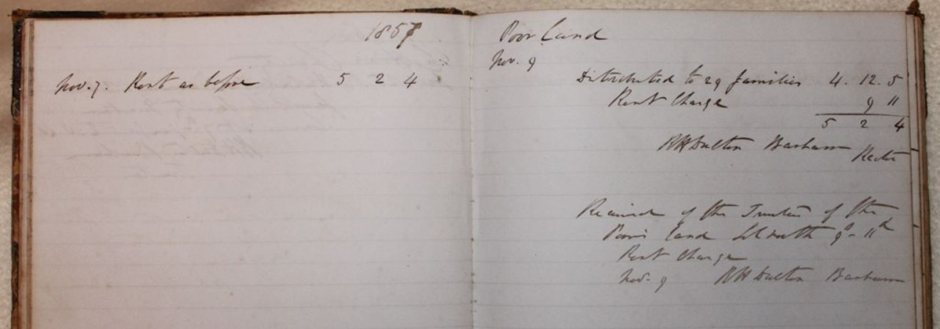 1857
Nov. 7. Rent as before 5 2 4
Poor Land
Nov. 9
Distributed to 29 families 4. 12. 5
Rent Charge 9 11
5 2 4
RH Dalton Burham
Rector
Received of the Trustees of the
Poor's Land 9s 11d
Rent Charge
Nov. 9 RH Dalton